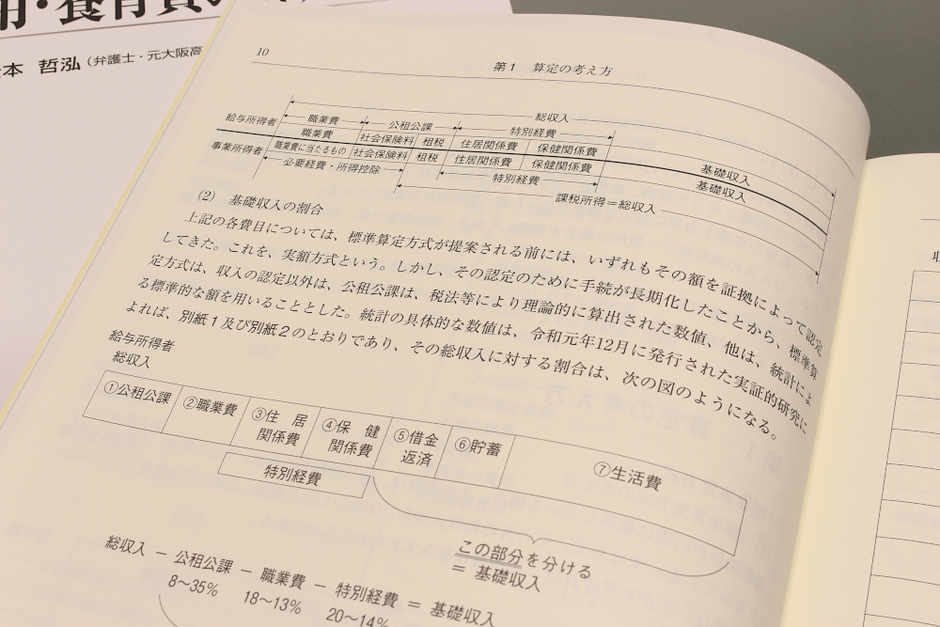 用・養育費
本 哲泓(弁護士・元大阪高
10
第1 算定の考え方
総収入
職業費 公租公課 特別経費
給与所得者 職業費 社会保険料 租税 住居関係費 保健関係費 基礎収入
事業所得者 職業費に当たるもの 社会保険料 租税 住居関係費 保健関係費 基礎収入
必要経費・所得控除 特別経費
課税所得=総収入
(2) 基礎収入の割合
上記の各費目については、標準算定方式が提案される前には、いずれもその額を証拠によって認定
してきた。これを、実額方式という。しかし、その認定のために手続が長期化したことから、標準算
定方式は、収入の認定以外は、公租公課は、税法等により理論的に算出された数値、他は、統計によ
る標準的な額を用いることとした。統計の具体的な数値は、令和元年12月に発行された実証的研究に
よれば、別紙1及び別紙2のとおりであり、その総収入に対する割合は、次の図のようになる。
給与所得者
総収入
①公租公課 ②職業費 ③住居関係費 ④保健関係費 ⑤借金返済 ⑥貯蓄 ⑦生活費
特別経費
この部分を分ける
=基礎収入
総収入 − 公租公課 − 職業費 − 特別経費 = 基礎収入
8〜35% 18〜13% 20〜14%